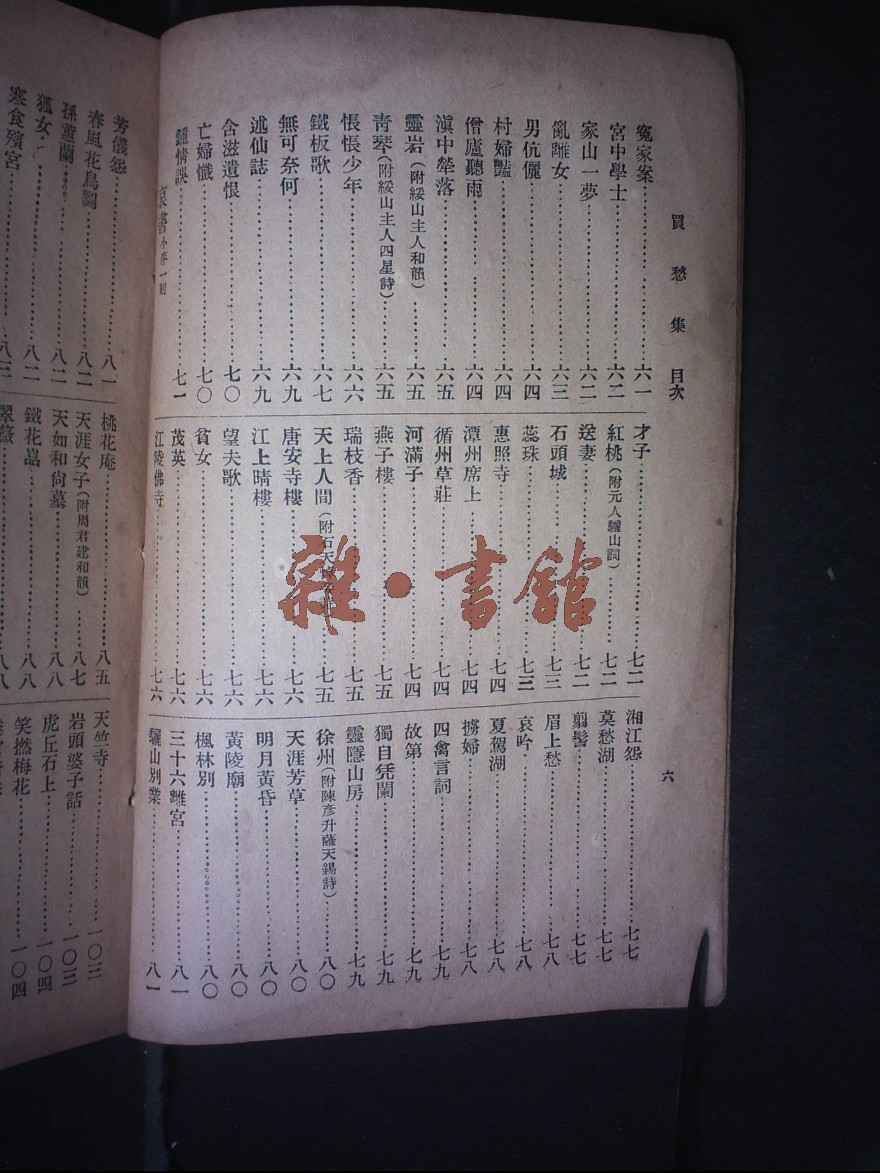 買愁集 目次
六
冤家案 六一
宮中學士 六二
家山一夢 六二
亂離女 六三
男伉儷 六四
村婦豔 六四
僧廬聽雨 六四
滇中犖落 六五
靈岩(附綏山主人和韻) 六五
青琴(附綏山主人四星詩) 六五
悵悵少年 六六
鐵板歌 六七
無可奈何 六九
述仙誌 六九
含滋遺恨 七〇
亡婦懺 七〇
鍾情訣 七一
哀書
才子 七二
紅桃(附元人驪山詞) 七二
送妻 七二
石頭城 七三
蕊珠 七三
惠照寺 七四
潭州席上 七四
循州草莊 七四
河滿子 七四
燕子樓 七五
瑞枝香 七五
天上人間(附石天 七五
唐安寺樓 七六
江上晴樓 七六
望夫歌 七六
貧女 七六
茂英 七六
江陵佛寺 七六
湘江怨 七七
莫愁湖 七七
翦髻 七七
眉上愁 七八
哀吟 七八
夏駕湖 七八
擄婦 七八
四禽言詞 七九
故第 七九
獨自凭闌 七九
靈隱山房 七九
徐州(附陳彥升薩天錫詩) 八〇
天涯芳草 八〇
明月黃昏 八〇
黃陵廟 八〇
楓林別 八〇
三十六離宮 八一
驪山別業 八一
芳儀怨 八一
春風花鳥闘 八二
孫蕙蘭 八二
狐女 八二
寒食殯宮 八三
桃花庵 八五
天涯女子(附周君建和韻) 八七
天如和尙墓 八八
鐵花嵓 八八
翠薇 八八
天竺寺 一〇三
岩頭婆子話 一〇三
虎丘石上 一〇四
笑撚梅花 一〇四
雜·書館